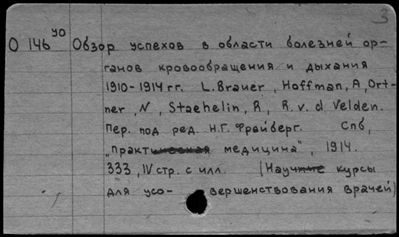 3
О 146 уо Обзор успехов в области болезней ор-
ганов кровообращения и дыхания
1910-1914 гг. L. Brauer, Hoffman, A, Ort-
ner, N, Staehelin, R, R. v. d Velden.
Пер. под ред. Н.Г. Фрейберг. Спб,
"Практическая медицина", 1914.
333, IV стр. с илл. (Научные курсы
для усо- вершенствования врачей)